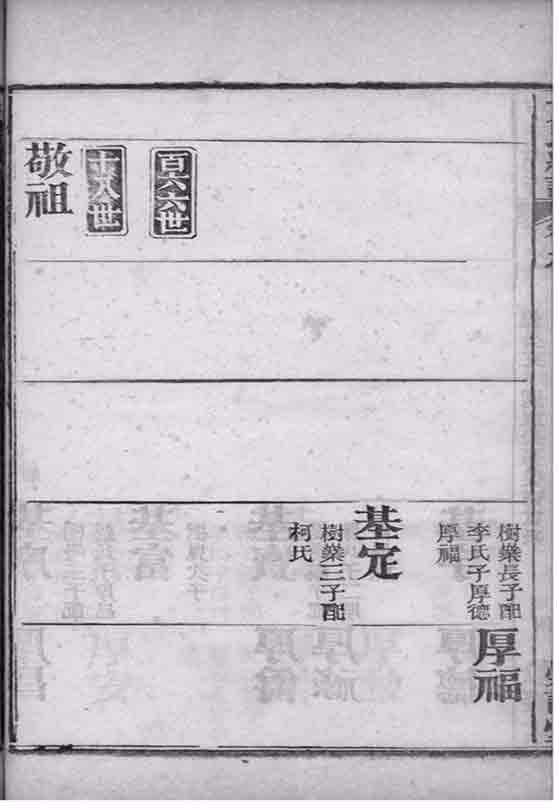 樹業長子配
李氏子厚德
厚福
厚福
基定
樹業三子配
柯氏
百六六世
十八世
敬祖